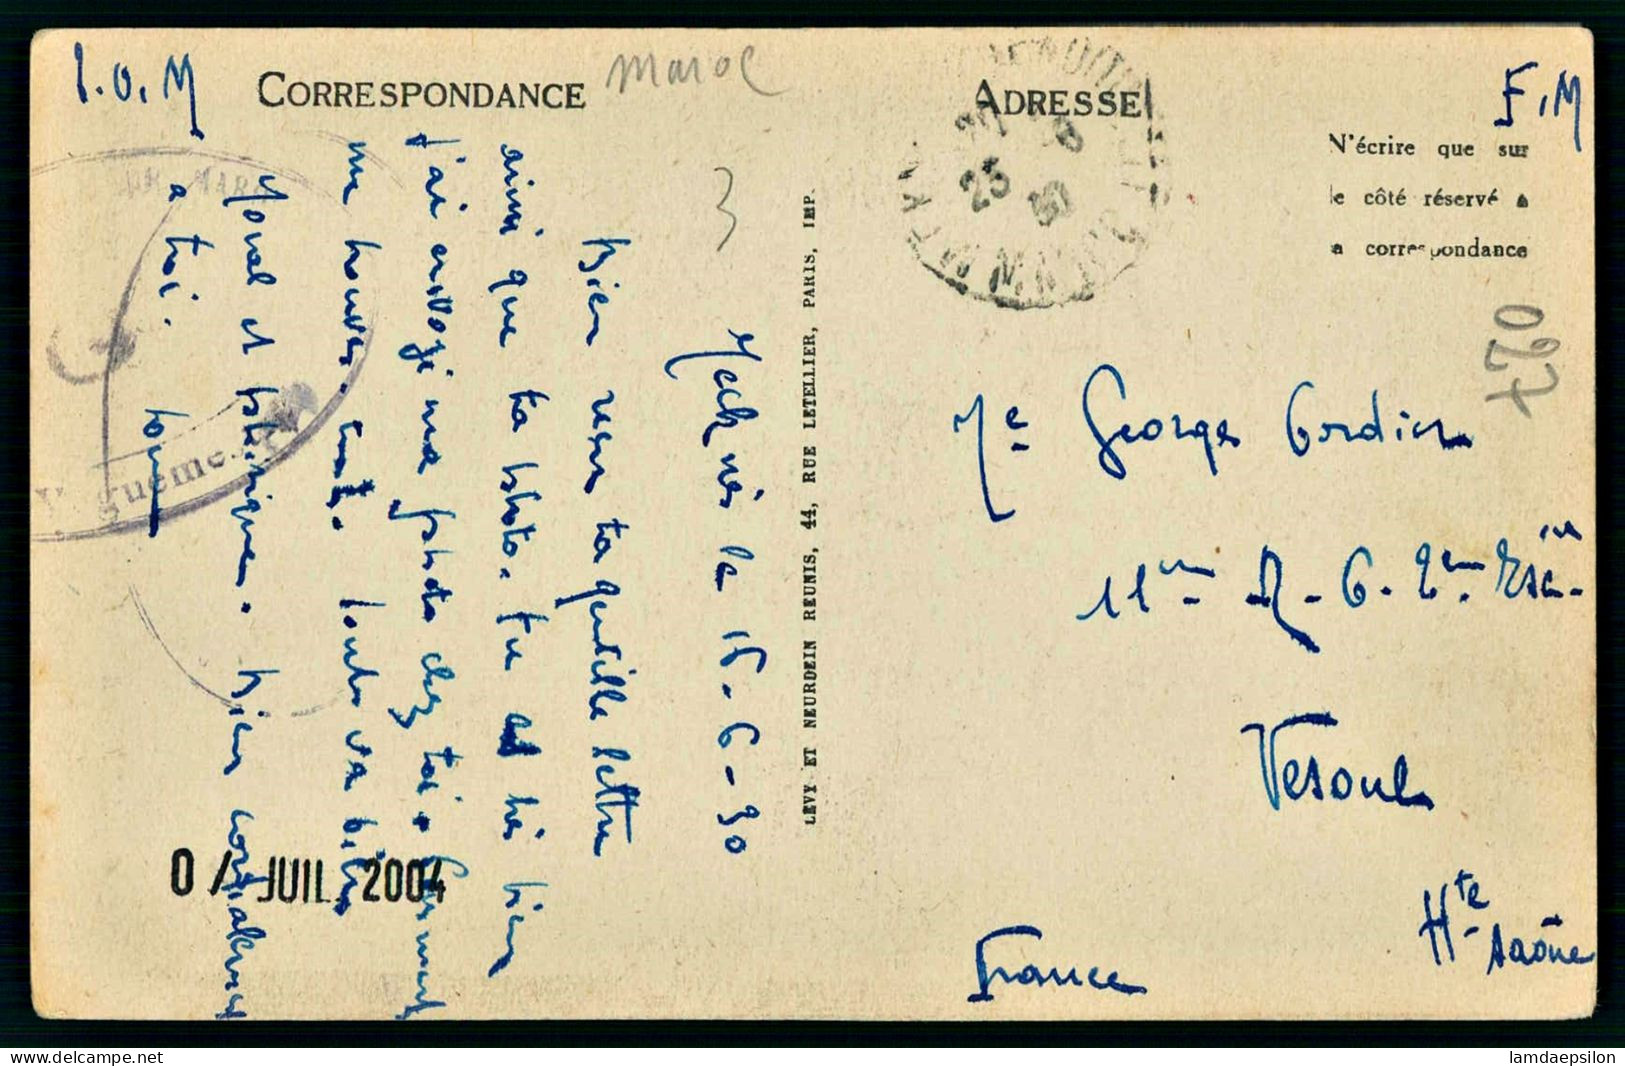 CORRESPONDANCE
Maroc
ADRESSE
F.M
N'écrire que sur
le côté réservé à
la correspondance
Meknès le 15-6-30
Bien reçu ta gentille lettre
ainsi que ta photo. tu es très bien
j'ai envoyé ma photo chez toi. Comment
me trouves. toi. toute va bien
Moral et physique. bien cordialement
à toi.
LEVY ET NEURDEIN REUNIS, 44, RUE LETELLIER, PARIS, IMP.
Mr Georges Cordier
11ème R. G. 2ème Esc.
Vesoul
Hte Saône
France
067
23
30
JUIL. 2004
lamdaepsilon